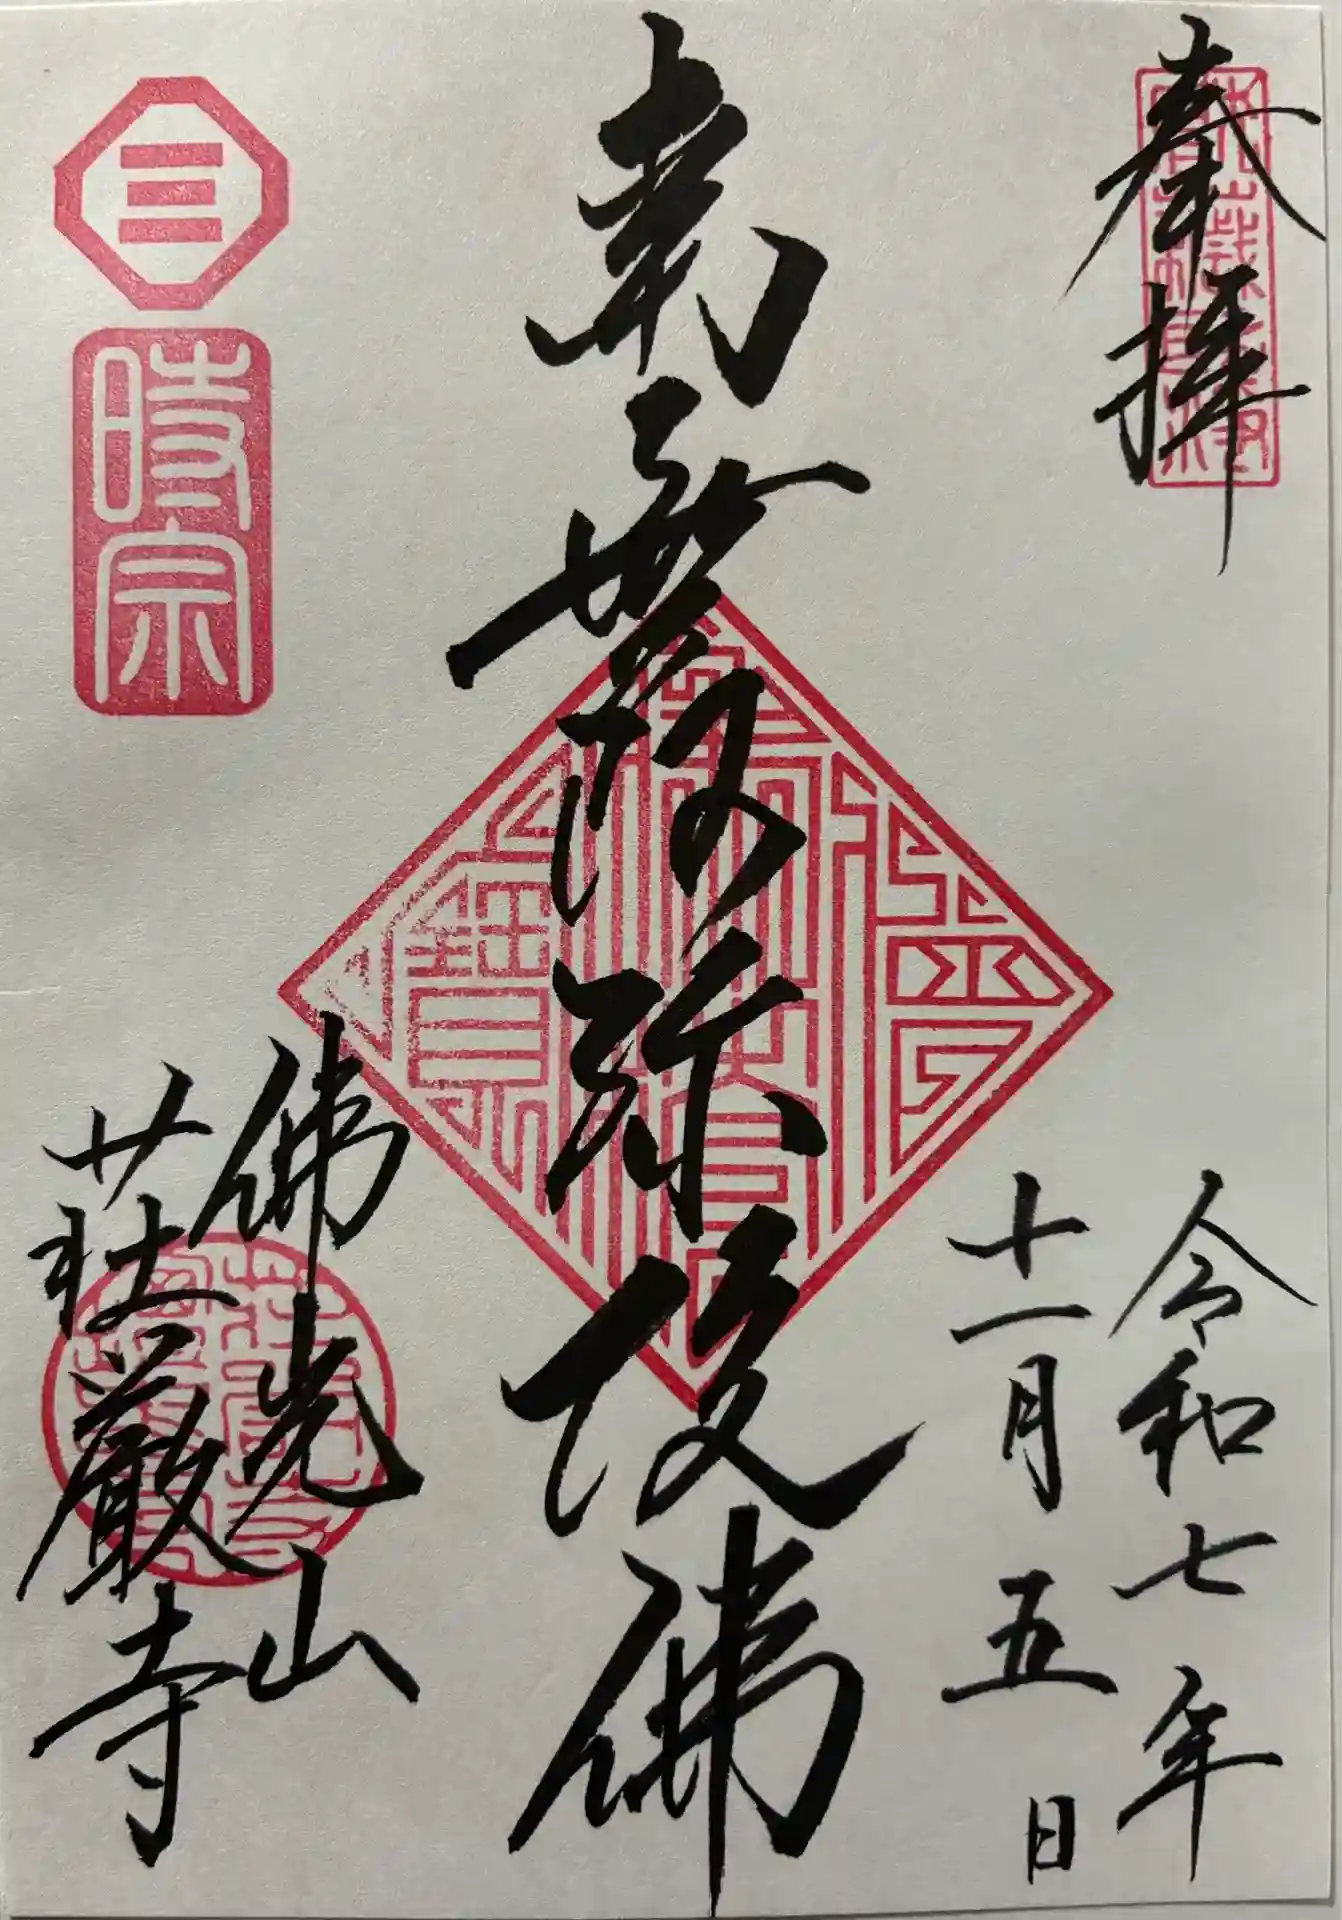 奉拝
令和七年
十一月五日
南無阿弥陀佛
佛光山
荘厳寺
時宗